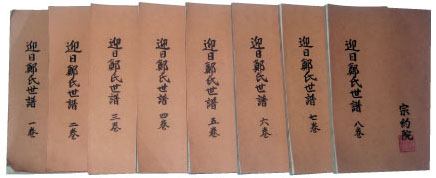 迎日鄭氏世譜 一巻
迎日鄭氏世譜 二巻
迎日鄭氏世譜 三巻
迎日鄭氏世譜 四巻
迎日鄭氏世譜 五巻
迎日鄭氏世譜 六巻
迎日鄭氏世譜 七巻
迎日鄭氏世譜 八巻
宗約院